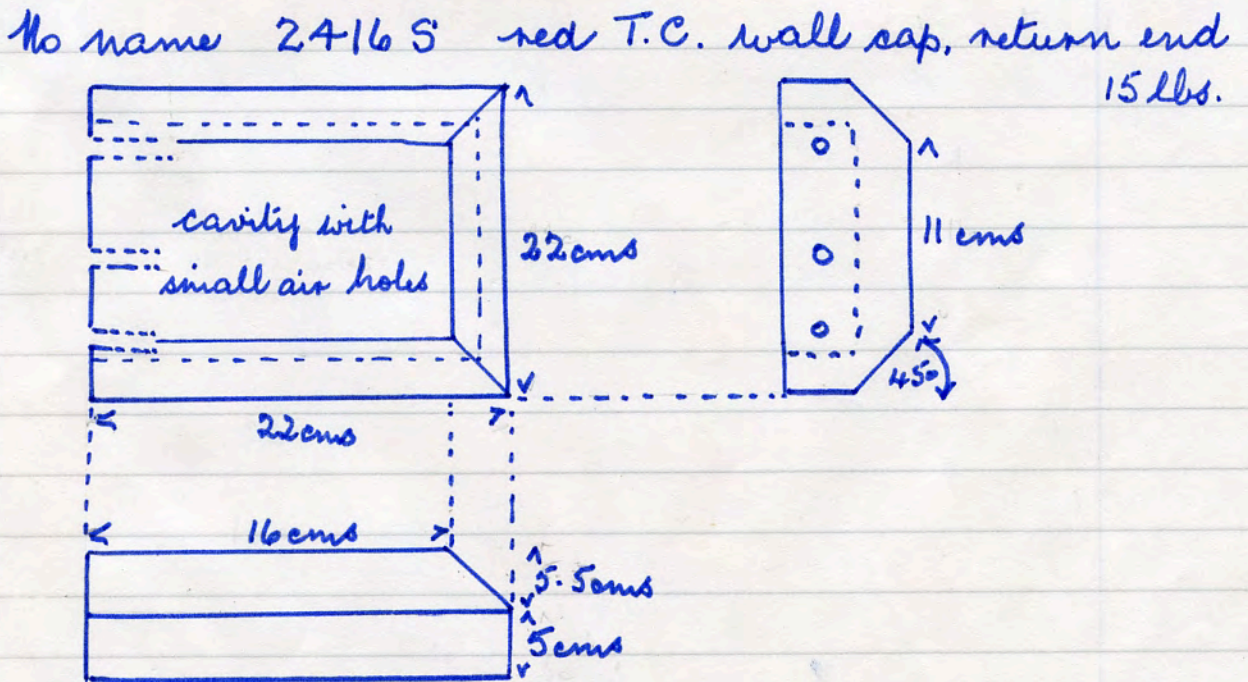 No name 2416 S red T.C. wall cap, return end
15 lbs.
cavity with
small air holes
22 cms
11 cms
45°
22 cms
16 cms
5.5 cms
5 cms